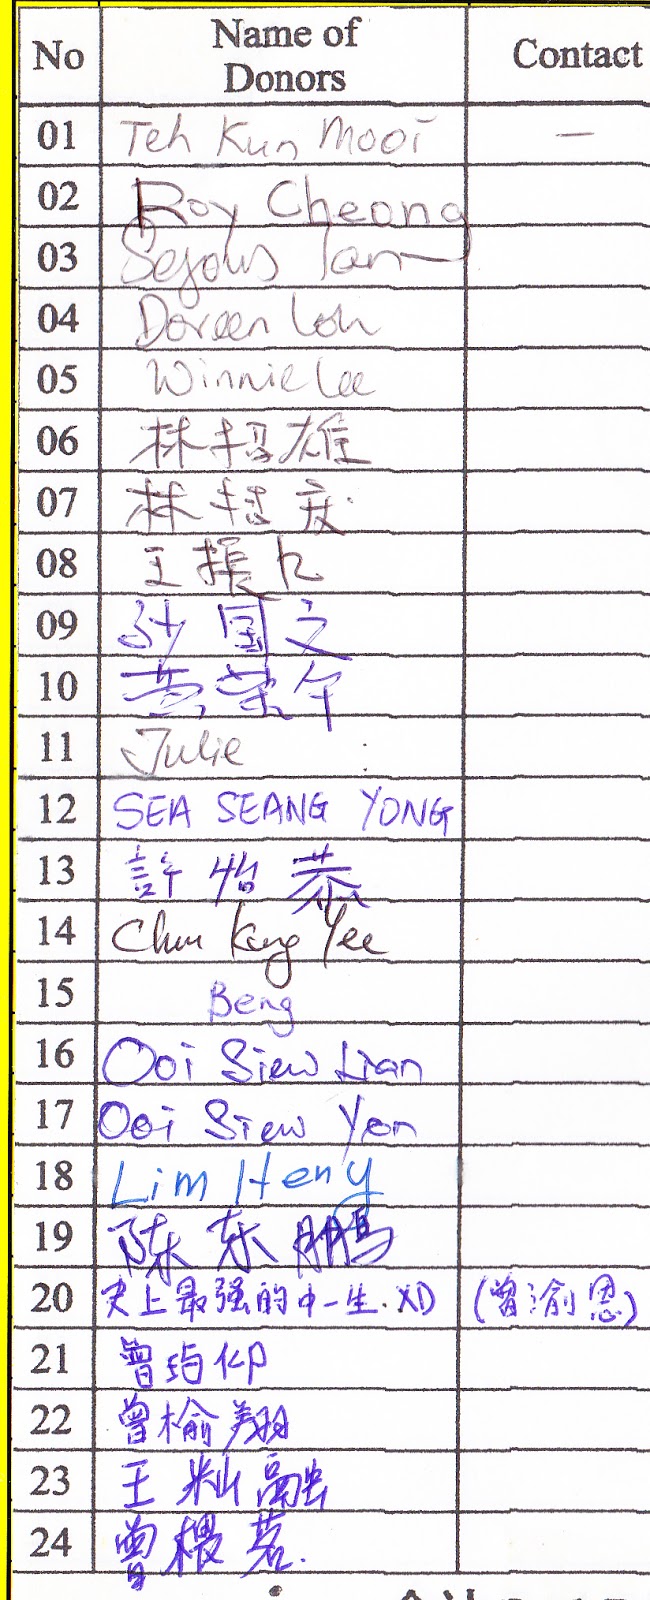 No Name of Donors Contact
01 Teh Kun Mooi —
02 Roy Cheong
03 Tan
04 Doreen Loh
05 Winnie Lee
06 林招雄
07 林
08 王振
09 国文
10 黄荣
11 Julie
12 SEA SEANG YONG
13 許怡恭
14 Yee
15 Beng
16 Ooi Siew Lian
17 Ooi Siew Yen
18 Lim Heny
19 陈东鹏
20 史上最强的中一生.XD (曾渝恩)
21 曾仰
22 曾榆翔
23 王灿融
24 曾